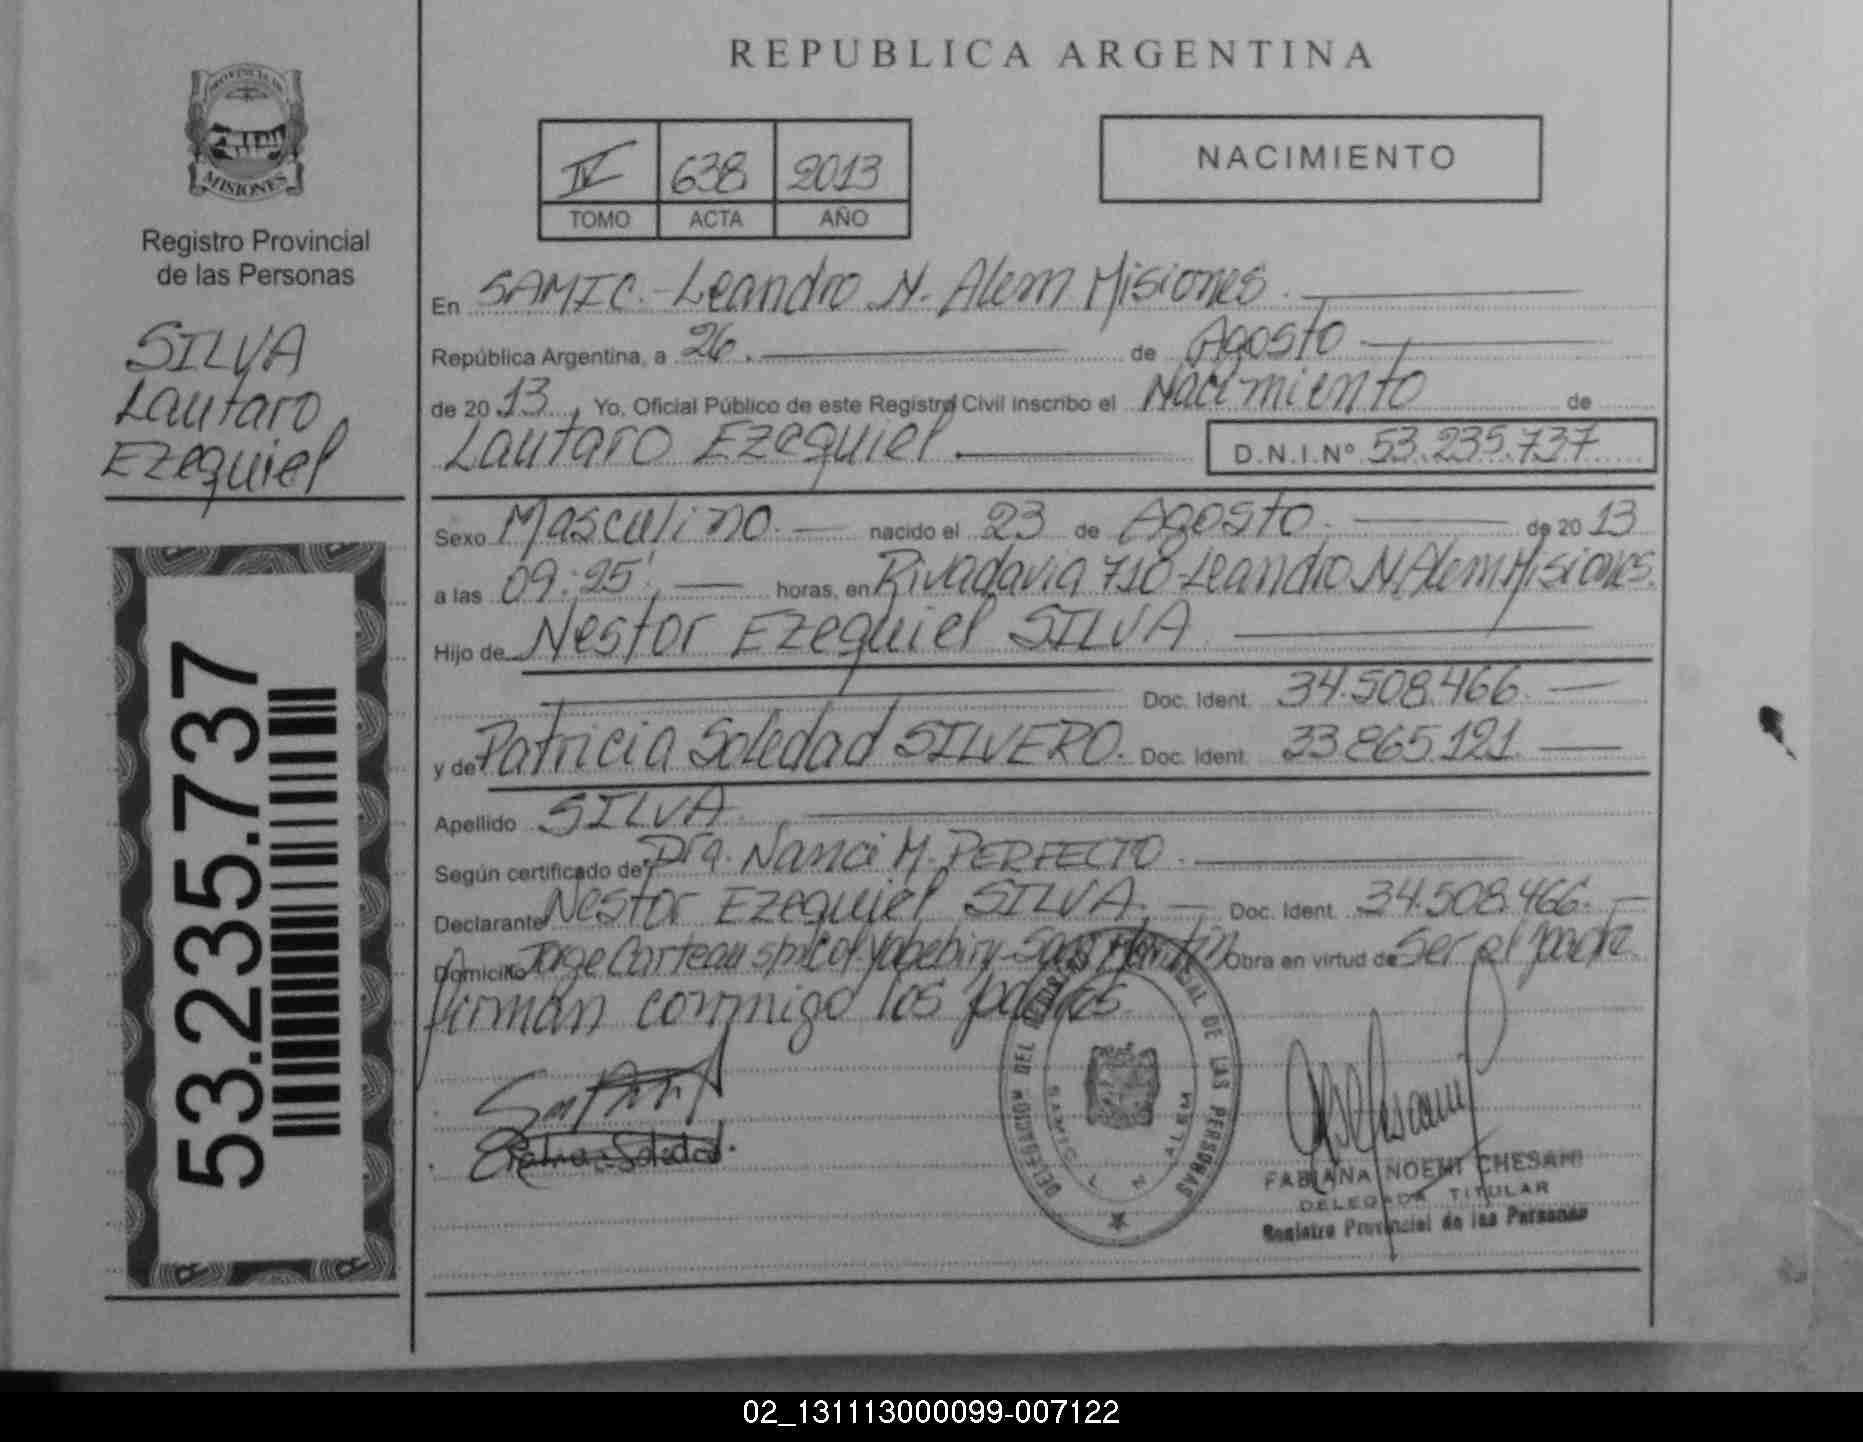 REPUBLICA ARGENTINA
PROVINCIA DE
MISIONES
Registro Provincial
de las Personas
SILVA
Lautaro
Ezequiel
53.235.737
IV 638 2013
TOMO ACTA AÑO
NACIMIENTO
En SAMIC.-Leandro N. Alem Misiones.
República Argentina, a 26. de Agosto
de 20 13, Yo, Oficial Público de este Registro Civil inscribo el Nacimiento de
Lautaro Ezequiel D.N.I.Nº 53.235.737
Sexo Masculino. nacido el 23 de Agosto. de 20 13
a las 09:25', horas, en Rivadavia 710-Leandro N. Alem Misiones.
Hijo de Nestor Ezequiel SILVA
Doc. Ident. 34.508.466.
y de Patricia Soledad SILVERO. Doc. Ident. 33.865.121.
Apellido SILVA.
Según certificado de: Dra. Nanci M. PERFECTO.
Declarante Nestor Ezequiel SILVA. Doc. Ident. 34.508.466.
Domicilio Jorge s/n Col. Yabebiry-San Martín Obra en virtud de Ser el padre
firman conmigo los padres.
Soledad.
DELEGACION DEL REGISTRO PROVINCIAL DE LAS PERSONAS
SAMIC L N ALEM
FABIANA NOEMI CHESANI
DELEGADA TITULAR
Registro Provincial de las Personas
02_131113000099-007122